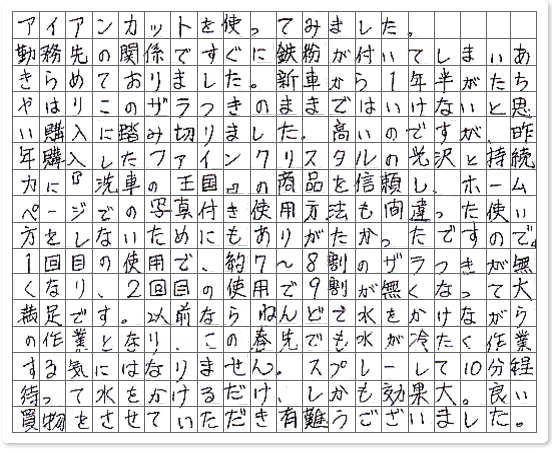 アイアンカットを使ってみました。
勤務先の関係ですぐに鉄粉が付いてしまいあ
きらめておりました。新車から1年半がたち
やはりこのザラつきのままではいけないと思
い購入に踏み切りました。高いのですが、昨
年購入したファインクリスタルの光沢と持続
力に『洗車の王国』の商品を信頼し、ホーム
ページでの写真付き使用方法も間違った使い
方をしないためにもありがたかったですので。
1回目の使用で、約7〜8割のザラつきが無
くなり、2回目の使用で9割が無くなって大
満足です。以前ならねんどで水をかけながら
の作業となり この春先でも水が冷たく作業
する気にはなりません。スプレーして10分経
待って水をかけるだけ、しかも効果大。良い
買物をさせていただき有難うございました。